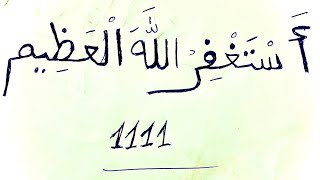 أَسْتَغْفِرُ اللَّهَ الْعَظِيم
1111